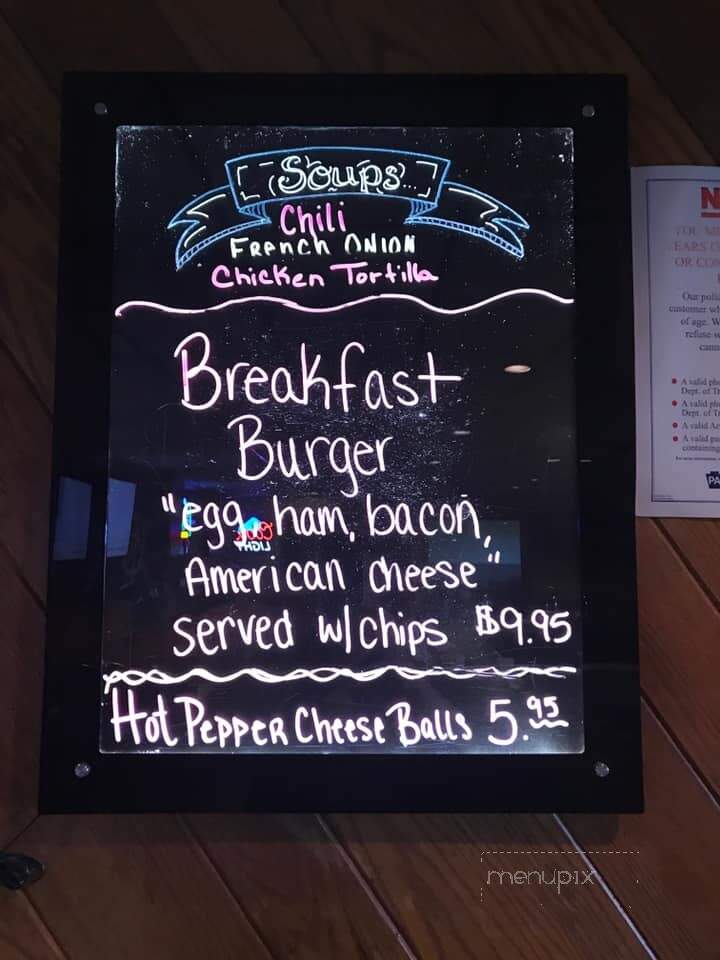 Soups
Chili
French Onion
Chicken Tortilla
Breakfast
Burger
"egg, ham, bacon,
American cheese"
served w/chips $9.95
Hot Pepper Cheese Balls 5.95
LIGHT
N
OR
Our
customer
of age. W
refuse
A valid
Dept. of
A valid
Dept. of
A valid
A valid
containing
PA
menupix